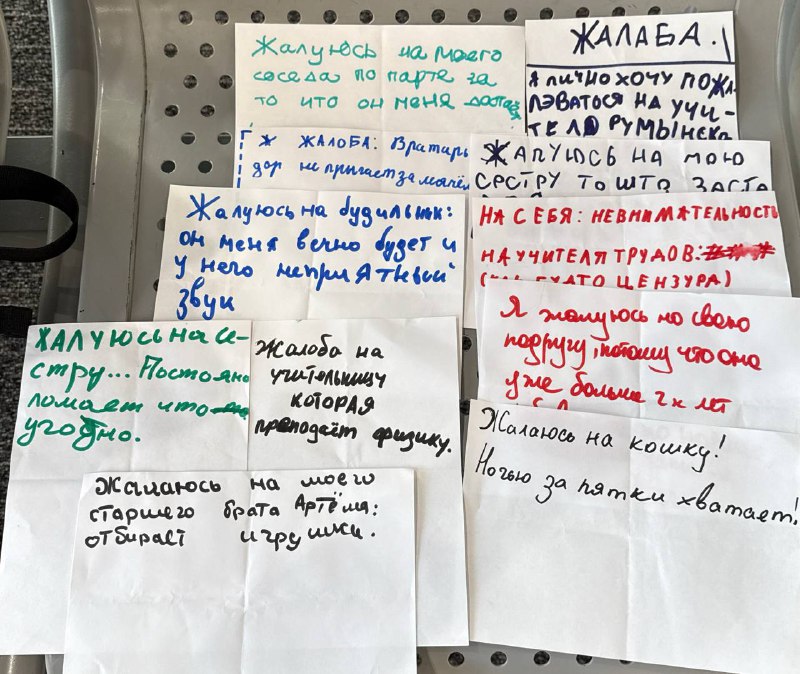 Жалуюсь на моего
соседа по парте за
то что он меня достаёт
ЖАЛАБА.
Я ЛИЧНО ХОЧУ ПОЖА-
ЛЭВАТОСЯ НА УЧИ-
ТЕЛЯ РУМЫНСКА
Ж ЖАЛОБА: Вратарь
дор не прыгает за мячём
ЖАЛУЮСЬ НА МОЮ
СЕСТРУ ТО ШТО ЗАСТА
Жалуюсь на будильник:
он меня вечно будет и
у него неприятный
звук
НА СЕБЯ: НЕВНИМАТЕЛЬНОСТЬ
НА УЧИТЕЛЯ ТРУДОВ:
БУДТО ЦЕНЗУРА)
Я жалуюсь на свою
подругу, потому что она
уже больше 2х лет
ЖАЛУЮСЬ НА СЕ-
СТРУ... Постояно
ломает что
угодно.
Жалоба на
учительницу
которая
преподаёт физику.
Жалаюсь на кошку!
Ночью за пятки хватает!
Жащаюсь на моего
старшего брата Артёма:
отбирает игрушки.